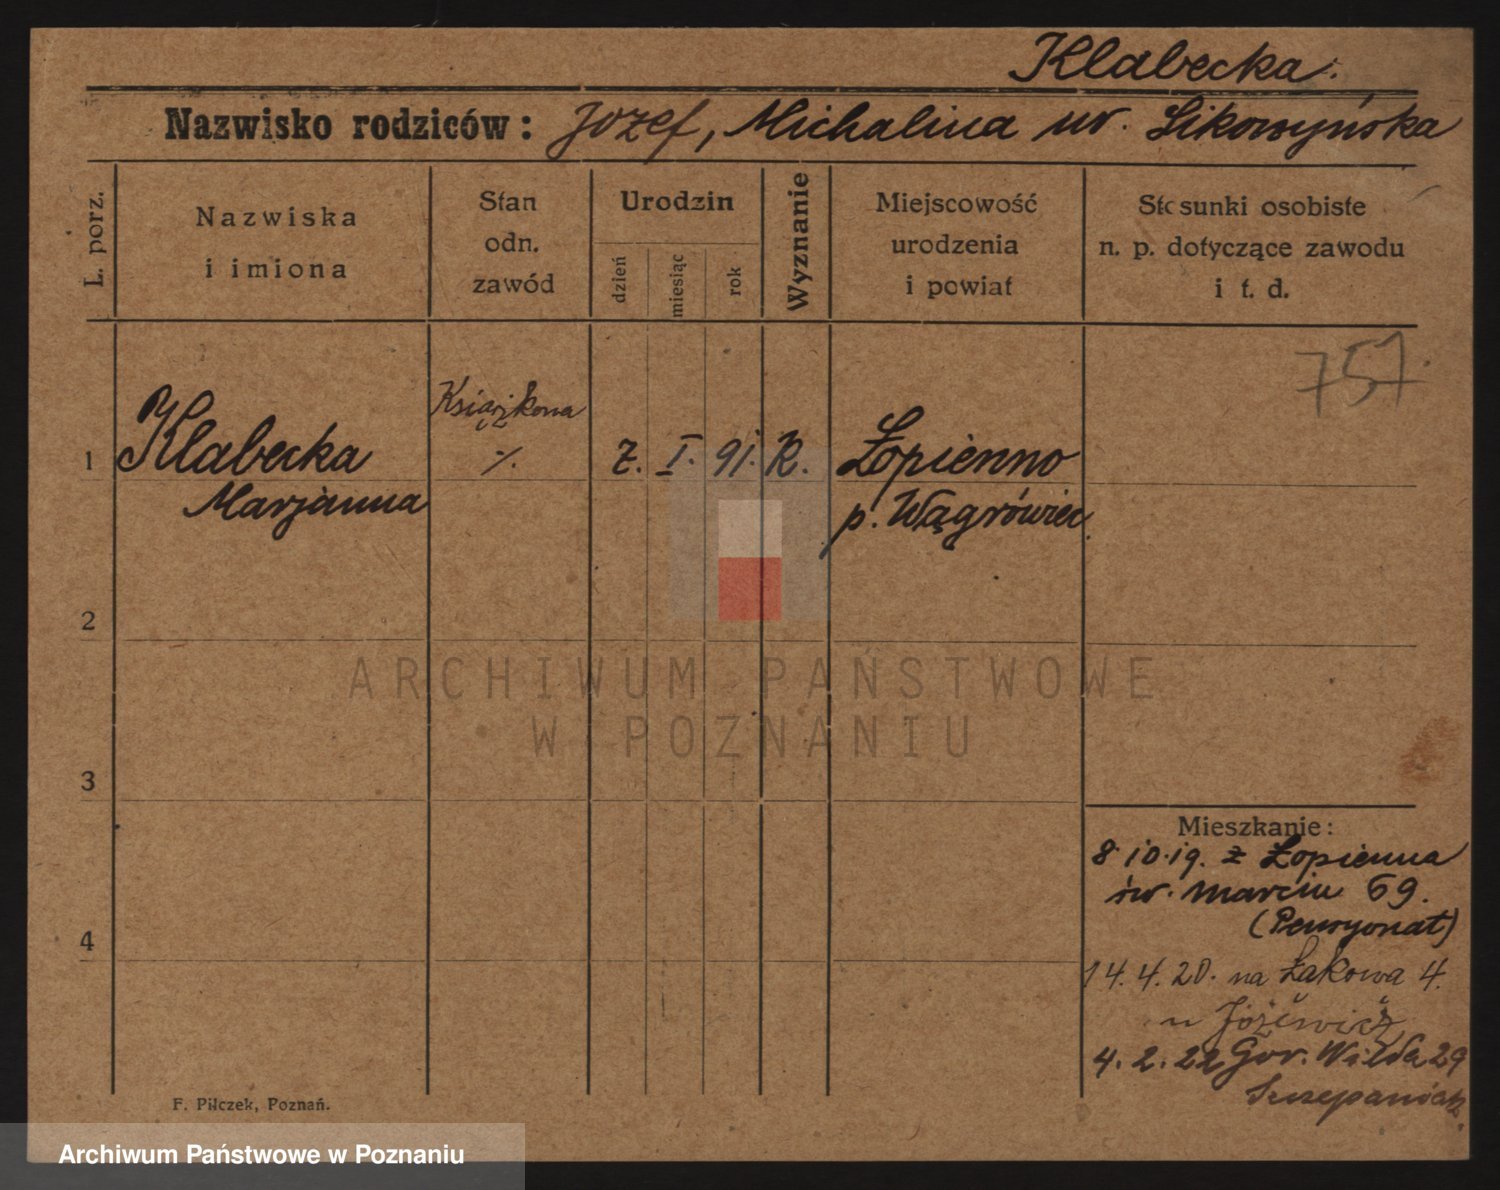 Klabecka.
Nazwisko rodziców: Jozef, Michalina ur. Sikorzyńska
L. porz.
Nazwiska
i imiona
Stan
odn.
zawód
Urodzin
dzień
miesiąc
rok
Wyznanie
Miejscowość
urodzenia
i powiat
Stosunki osobiste
n. p. dotyczące zawodu
i t. d.
757.
Książkowa
1 Klabecka ·/. 2. I. 91. R. Łopienno
Marjanna p. Wągrówiec.
2
3
4
Mieszkanie:
8.10.19. z Łopienna
św. Marcin 69.
(Pensyonat)
14.4.20. na Łąkowa 4.
u
4.2.22 Gór. Wilda 29
Szczepaniak.
F. Pilczek, Poznań.
ARCHIWUM PAŃSTWOWE
W POZNANIU
Archiwum Państwowe w Poznaniu